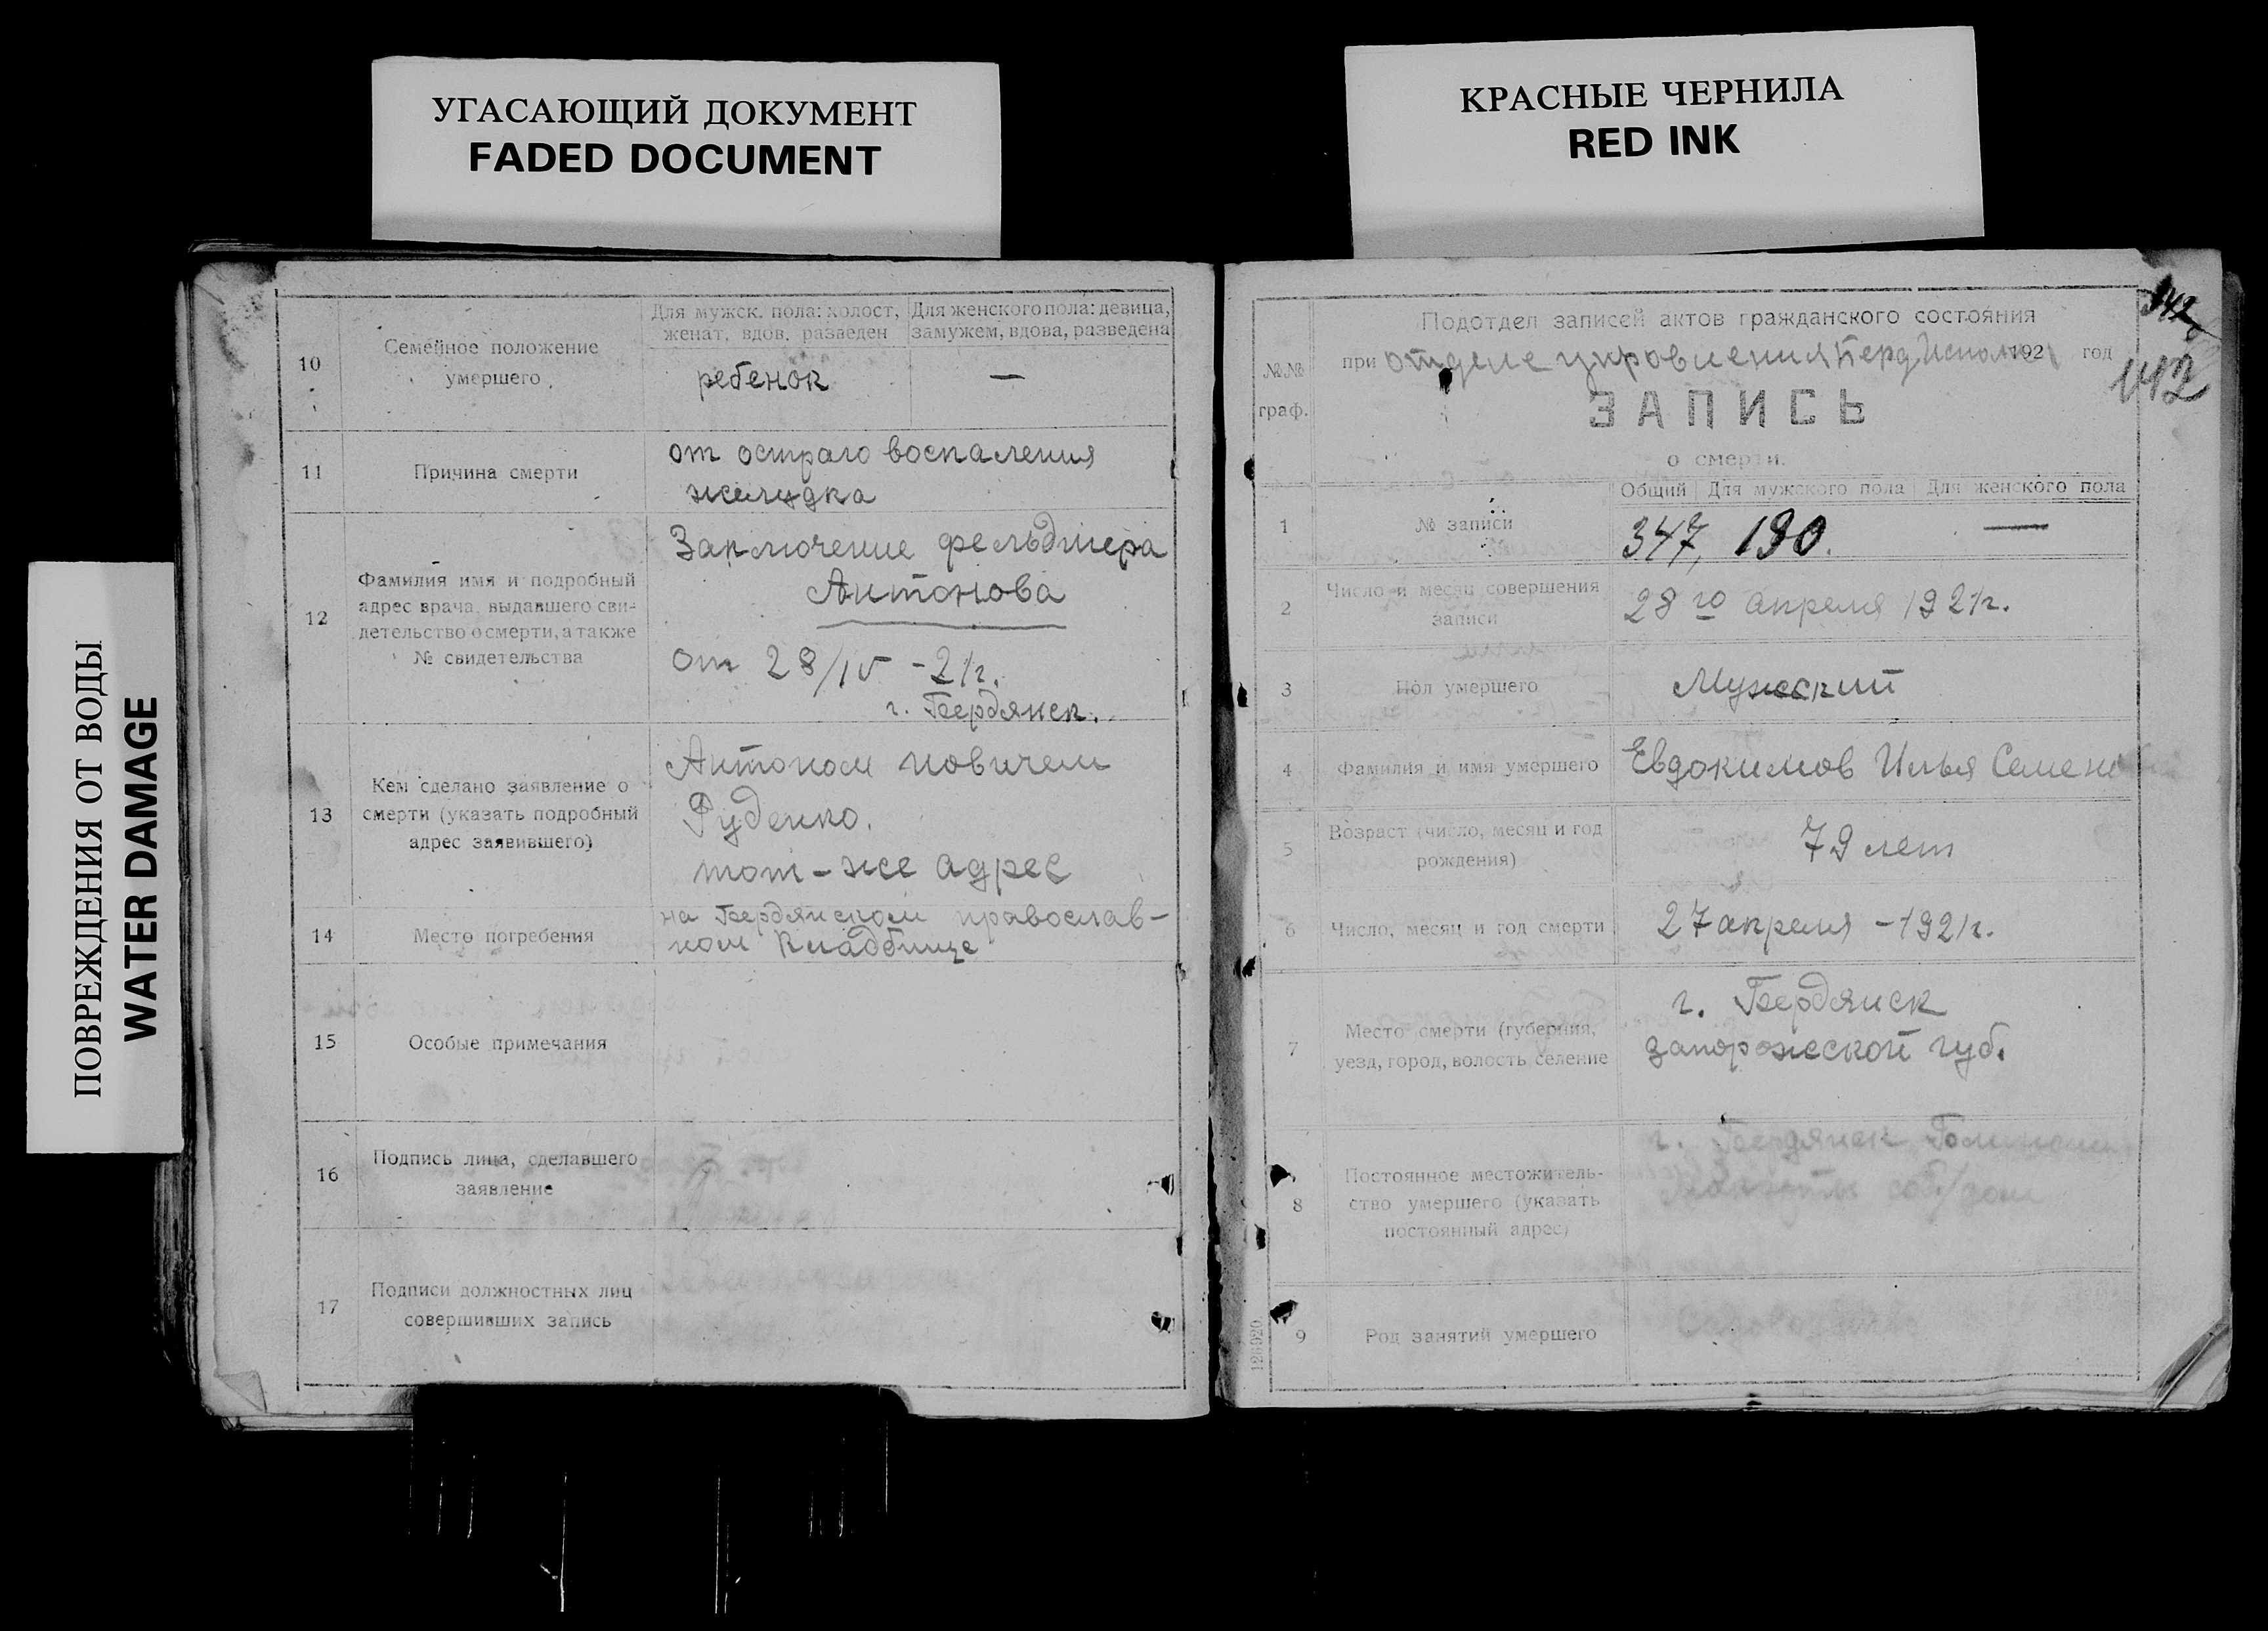 УГАСАЮЩИЙ ДОКУМЕНТ
FADED DOCUMENT
КРАСНЫЕ ЧЕРНИЛА
RED INK
ПОВРЕЖДЕНИЯ ОТ ВОДЫ
WATER DAMAGE
10
Семейное положение
умершего
Для мужск. пола: холост,
женат, вдов, разведен
Для женского пола: девица,
замужем, вдова, разведена
ребенок
—
11
Причина смерти
от остраго воспаления
желудка
12
Фамилия имя и подробный
адрес врача, выдавшего сви-
детельство о смерти, а также
№ свидетельства
Заключение фельдшера
Антонова
от 28/IV -21г.
г. Бердянск.
13
Кем сделано заявление о
смерти (указать подробный
адрес заявившего)
Антоном
Руденко.
тот-же адрес
14
Место погребения
на Бердянском православ-
ном кладбище
15
Особые примечания
16
Подпись лица, сделавшего
заявление
17
Подписи должностных лиц
совершивших запись
142
142
№№
граф.
Подотдел записей актов гражданского состояния
при отделе управления Берд Исполк 1921 год
ЗАПИСЬ
о смерти.
Общий Для мужского пола Для женского пола
1
№ записи
347, 190. —
2
Число и месяц совершения
записи
28го апреля 1921г.
3
Пол умершего
Мужеский
4
Фамилия и имя умершего
Евдокимов Илья Семено
5
Возраст (число, месяц и год
рождения)
79 лет
6
Число, месяц и год смерти
27 апреля -1921г.
7
Место смерти (губерния,
уезд, город, волость селение
г. Бердянск
запорожеской губ.
8
Постоянное местожитель-
ство умершего (указать
постоянный адрес)
г. Бердянск
соб/дом
9
Род занятий умершего
126920